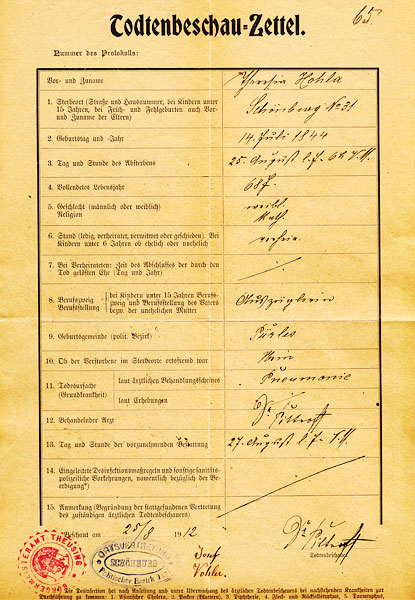 Todtenbeschau-Zettel.
65.
Nummer des Protokolls:
Vor- und Zuname
Theresia Hohla
1. Sterbeort (Straße und Hausnummer, bei Kindern unter
15 Jahren, bei Früh- und Fehlgeburten auch Vor-
und Zuname der Eltern)
Schönberg No 31
2. Geburtstag und -Jahr
14. Juli 1844
3. Tag und Stunde des Absterbens
25. August l. J. 6h V.M.
4. Vollendetes Lebensjahr
68 J.
5. Geschlecht (männlich oder weiblich)
Religion
weibl.
Kath.
6. Stand (ledig, verheiratet, verwitwet oder geschieden). Bei
Kindern unter 6 Jahren ob ehelich oder unehelich
7. Bei Verheirateten: Zeit des Abschlusses der durch den
Tod gelösten Ehe (Tag und Jahr)
8. Berufszweig
Berufsstellung
bei Kindern unter 15 Jahren Berufs-
zweig und Berufsstellung des Vaters
bezw. der unehelichen Mutter
9. Geburtsgemeinde (polit. Bezirk)
Purles
10. Ob der Verstorbene im Sterbeorte ortsfremd war
Nein
11. Todesursache
(Grundkrankheit)
laut ärztlichen Behandlungsscheines
laut Erhebungen
Pneumonie
12. Behandelnder Arzt
Dr.
13. Tag und Stunde der vorzunehmenden Bestattung
27. August l. J. V.M.
14. Eingeleitete Desinfektionsmaßregeln und sonstige sanitäts-
polizeiliche Vorkehrungen, namentlich bezüglich der Be-
erdigung*)
15. Anmerkung (Begründung der stattgefundenen Vertretung
des zuständigen ärztlichen Totenbeschauers)
Beschaut am 25/8 1912
Dr.
Totenbeschauer.
BÜRGERMEISTERAMT THEUSING
ORTSVERTRETUNG
SCHÖNBURG
Politischer Bezirk
Josef
Vohler
*) Die Desinfektion hat nach Anleitung und unter Überwachung des ärztlichen Totenbeschauers bei nachstehenden Krankheiten zur
Durchführung zu kommen: 1. Asiatischer Cholera, 2. Pocken (Blattern), 3. Diphtherie, 4. Fleck- und Rückfalltyphus, 5.